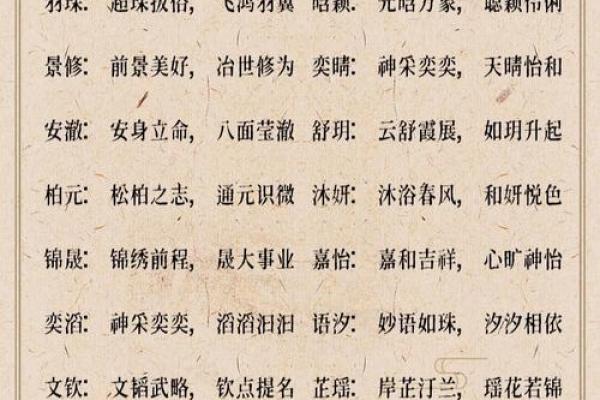 飞鸿羽翼 昭颖：光昭万象，聪颖伶俐
景修：前景美好，冶世修为 奕晴：神采奕奕，天晴怡和
安澈：安身立命，八面莹澈 舒玥：云舒霞展，如玥升起
柏元：松柏之志，通元识微 沐妍：沐浴春风，和妍悦色
锦晟：锦绣前程，晟大事业 嘉怡：嘉和吉祥，心旷神怡
奕滔：神采奕奕，滔滔汩汩 语汐：妙语如珠，汐汐相依
文钦：文韬武略，钦点提名 芷瑶：岸芷汀兰，瑶花若锦